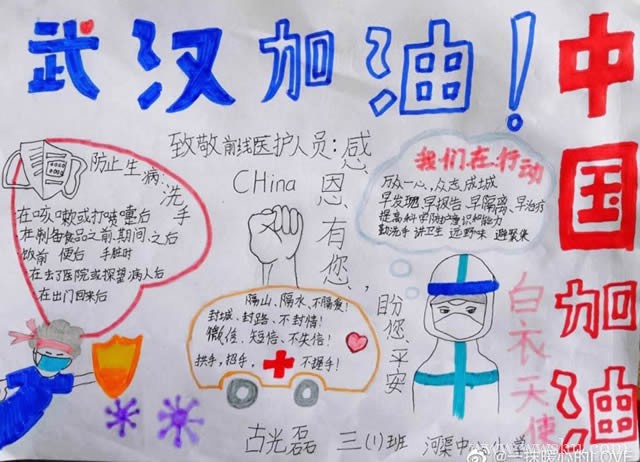 武汉加油!
中国加油
致敬前线医护人员:
感恩有您,
CHina
防止生病:
洗手
在咳嗽或打喷嚏后
在制备食品之前、期间、之后
饭前 便后 手脏时
在去了医院或探望病人后
在出门回来后
我们在行动
万众一心,众志成城
早发现、早报告、早隔离、早治疗
提高科学防护意识和能力
勤洗手 讲卫生 远野味 避聚集
隔山、隔水、不隔爱!
封城、封路、不封情!
微信、短信、不失信!
拱手,招手, 不握手!
您、平安
白衣天使
古光磊 三(1)班 河渠中心小学
@一抹暖心的LOVE